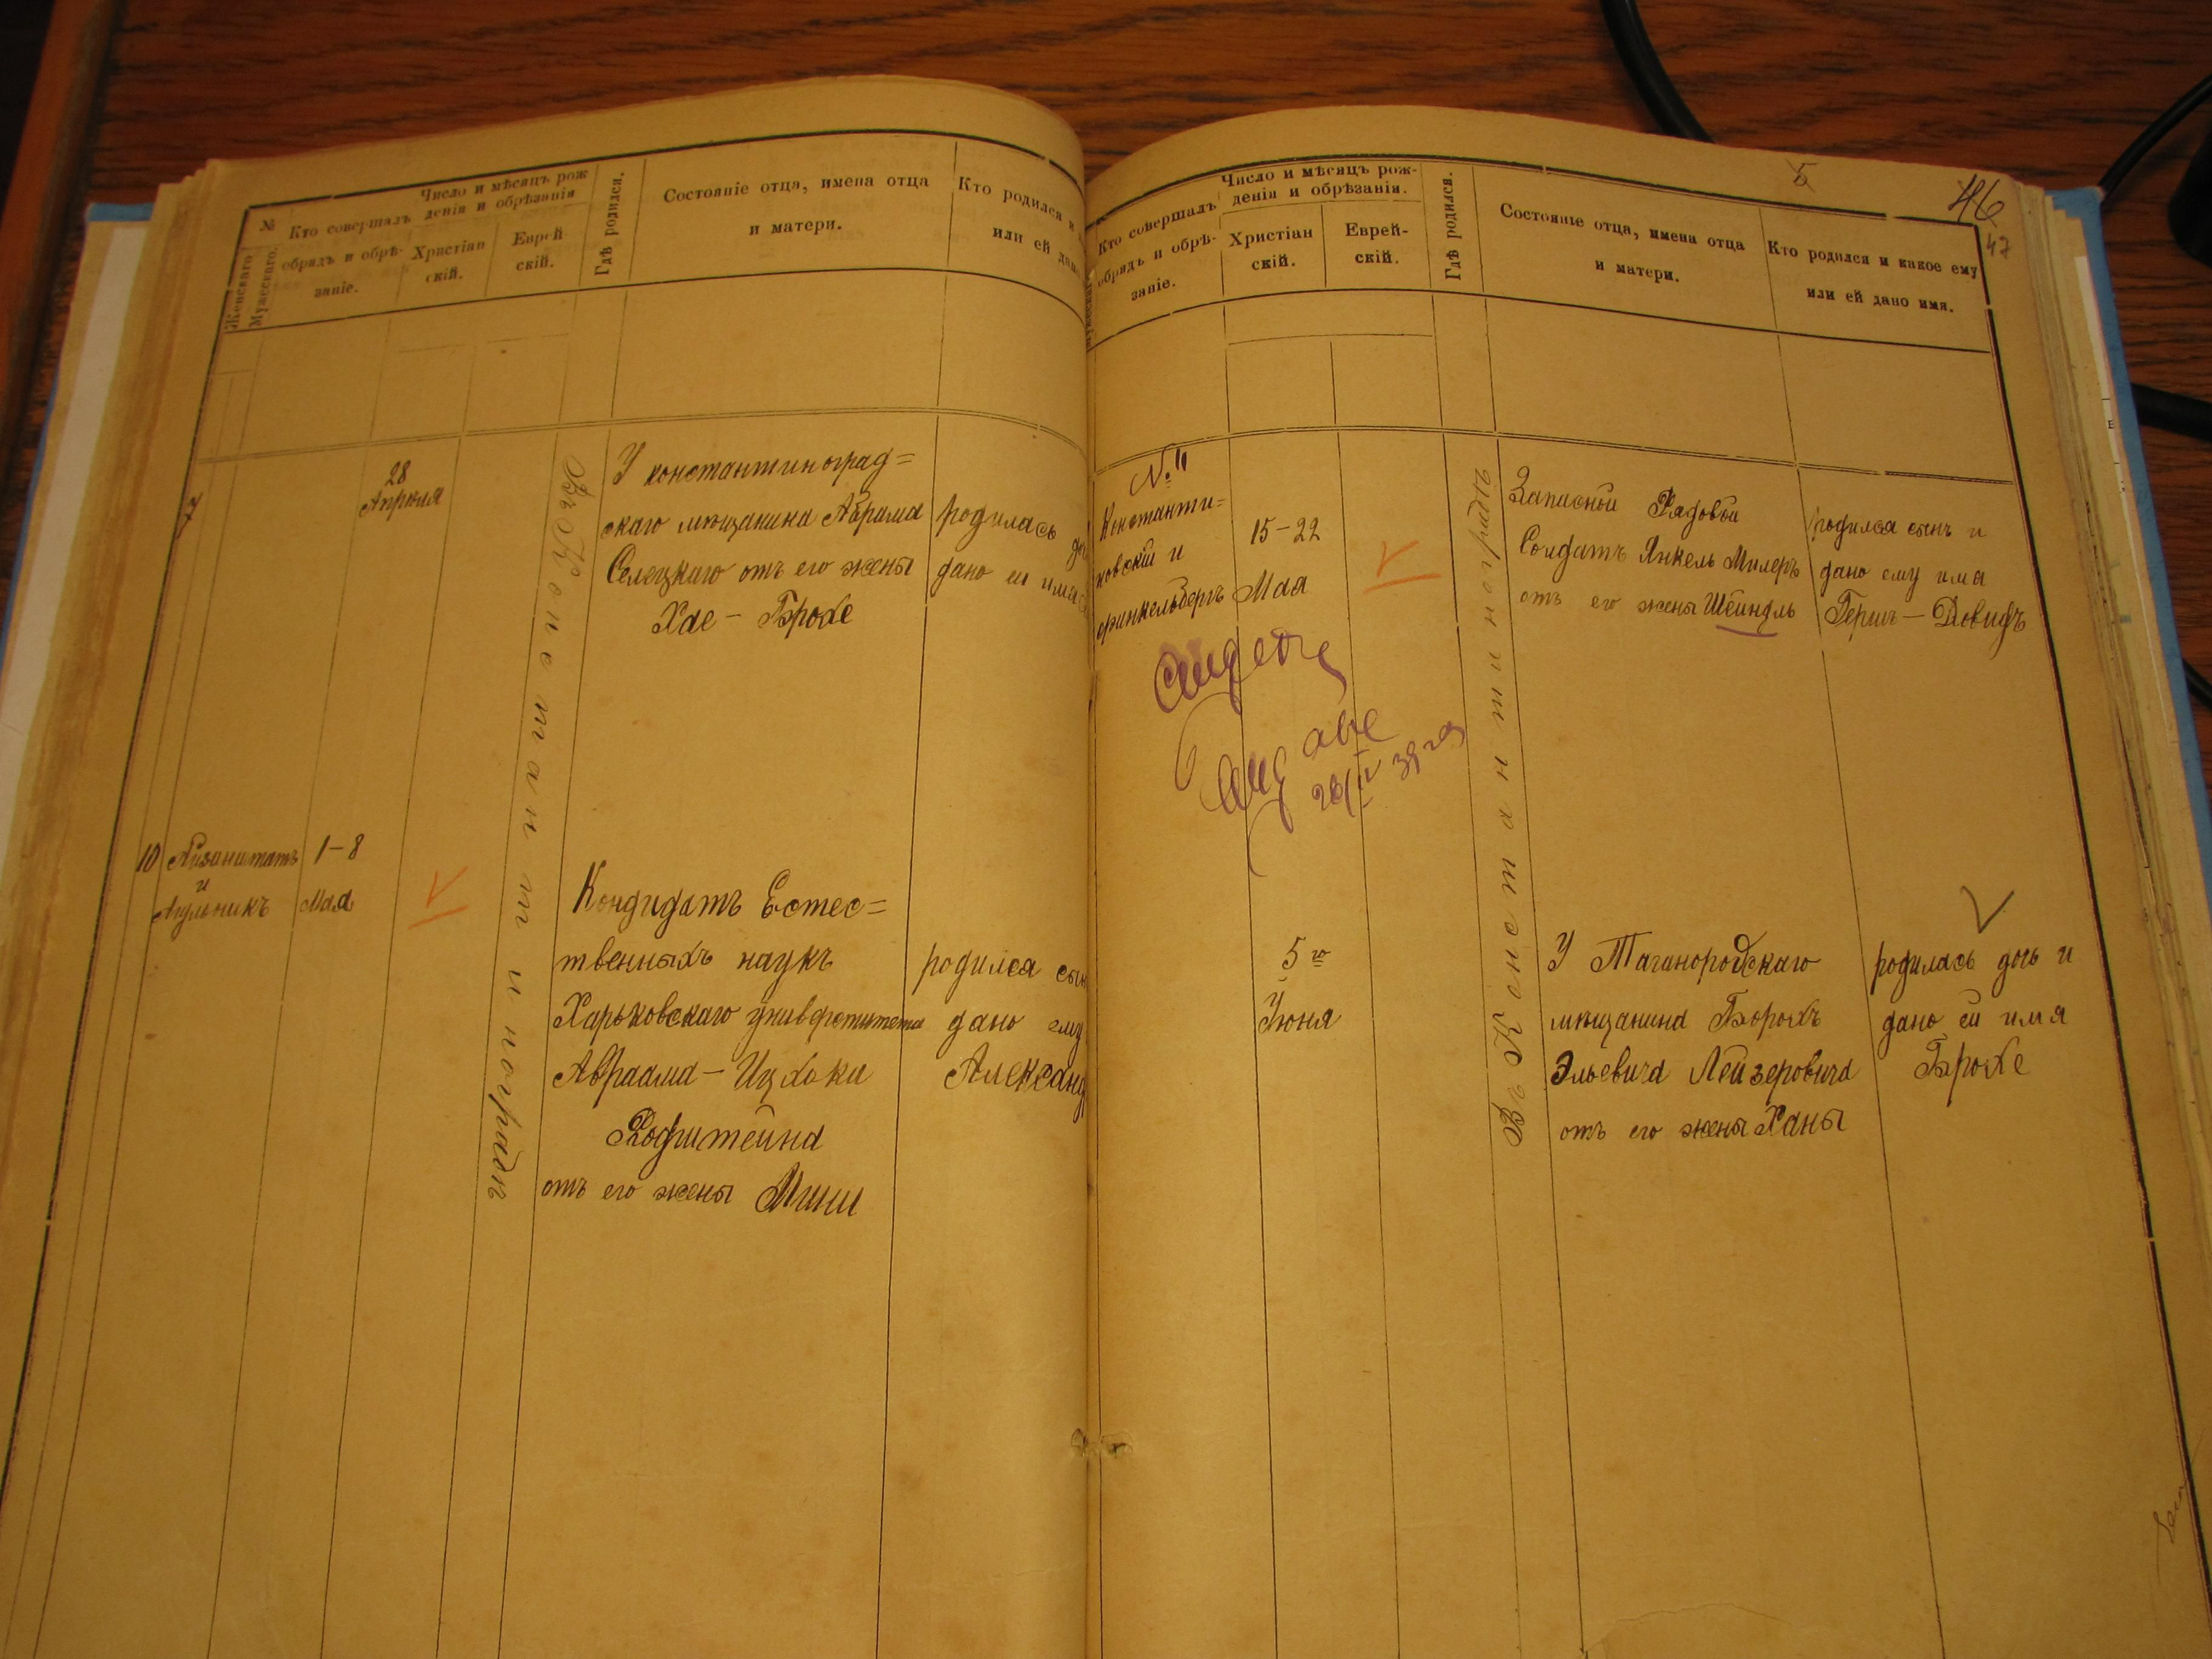 №
Женскаго
Мужескаго.
Кто совершалъ
обрядъ и обрѣ-
заніе.
Число и мѣсяцъ рож
денія и обрѣзанія
Христіан
скій.
Еврей-
скій.
Гдѣ родился.
Состояніе отца, имена отца
и матери.
Кто родился и
или ей дано
28
Апрѣля
Въ Константиноградѣ
У константиноград=
скаго мѣщанина Абрама
Селецкаго отъ его жены
Хае - Брохе
родилась до
дано ей имя
10
и
1-8
Мая
Кондидатъ Естес=
твенныхъ наукъ
Харьковскаго университета
Авраама - Ицхока
отъ его жены
родился сын
дано ему
Александ
Кто совершалъ
обрядъ и обрѣ-
заніе.
Число и мѣсяцъ рож-
денія и обрѣзанія.
Христіан
скій.
Еврей-
скій.
Гдѣ родился.
Состояніе отца, имена отца
и матери.
Кто родился и какое ему
или ей дано имя.
5
46
47
№ 11
Константи=
новскій и
финкельбергъ
15-22
Мая
Въ Константиноградѣ
Запасной Рядовой
Солдатъ Янкель Милеръ
отъ его жены Шейндль
родился сынъ и
дано ему имя
Гершъ - Довидъ
5го
Іюня
У Таганорогскаго
мѣщанина Борохъ
Эльевича Лейзеровича
отъ его жены Ханы
родилась дочь и
дано ей имя
Брохе